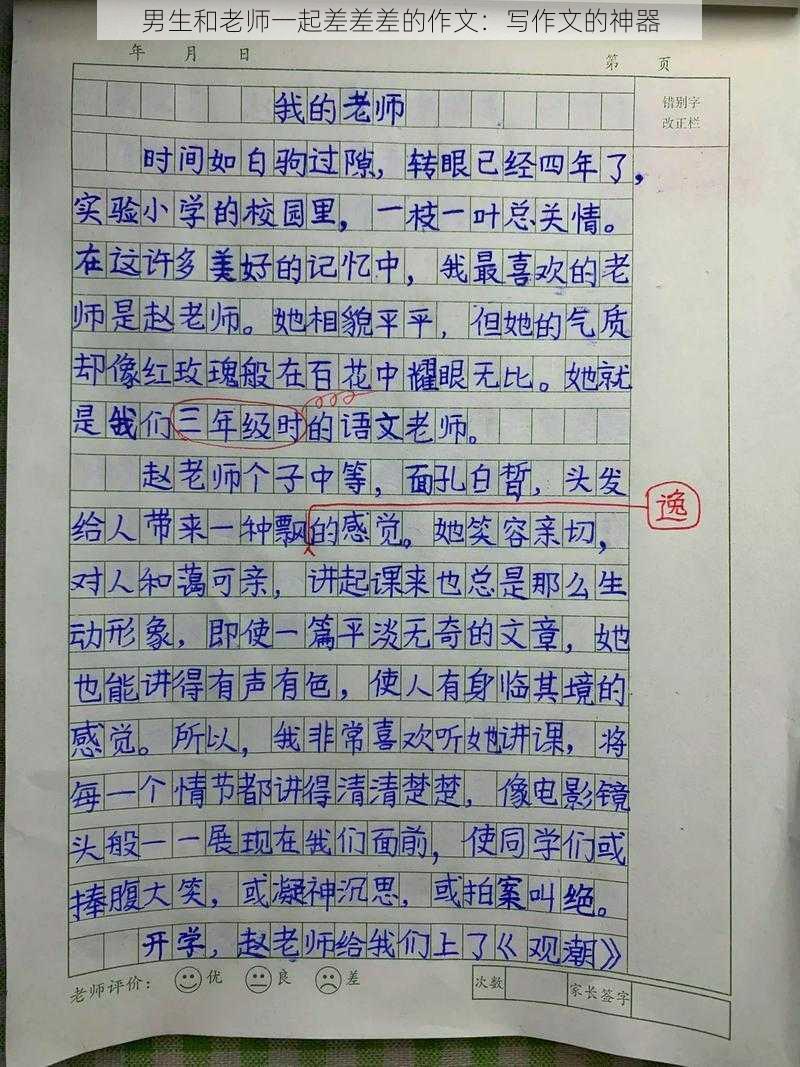 男生和老师一起差差差的作文：写作文的神器
年 月 日
第 页
错别字
改正栏
我的老师
时间如白驹过隙，转眼已经四年了，
实验小学的校园里，一枝一叶总关情。
在这许多美好的记忆中，我最喜欢的老
师是赵老师。她相貌平平，但她的气质
却像红玫瑰般在百花中耀眼无比。她就
是我们三年级时的语文老师。
赵老师个子中等，面孔白皙，头发
逸
给人带来一种飘的感觉。她笑容亲切，
对人和蔼可亲，讲起课来也总是那么生
动形象，即使一篇平淡无奇的文章，她
也能讲得有声有色，使人有身临其境的
感觉。所以，我非常喜欢听她讲课，将
每一个情节都讲得清清楚楚，像电影镜
头般一一展现在我们面前，使同学们或
捧腹大笑，或凝神沉思，或拍案叫绝。
开学，赵老师给我们上了《观潮》
老师评价： 优 良 差
次数 家长签字